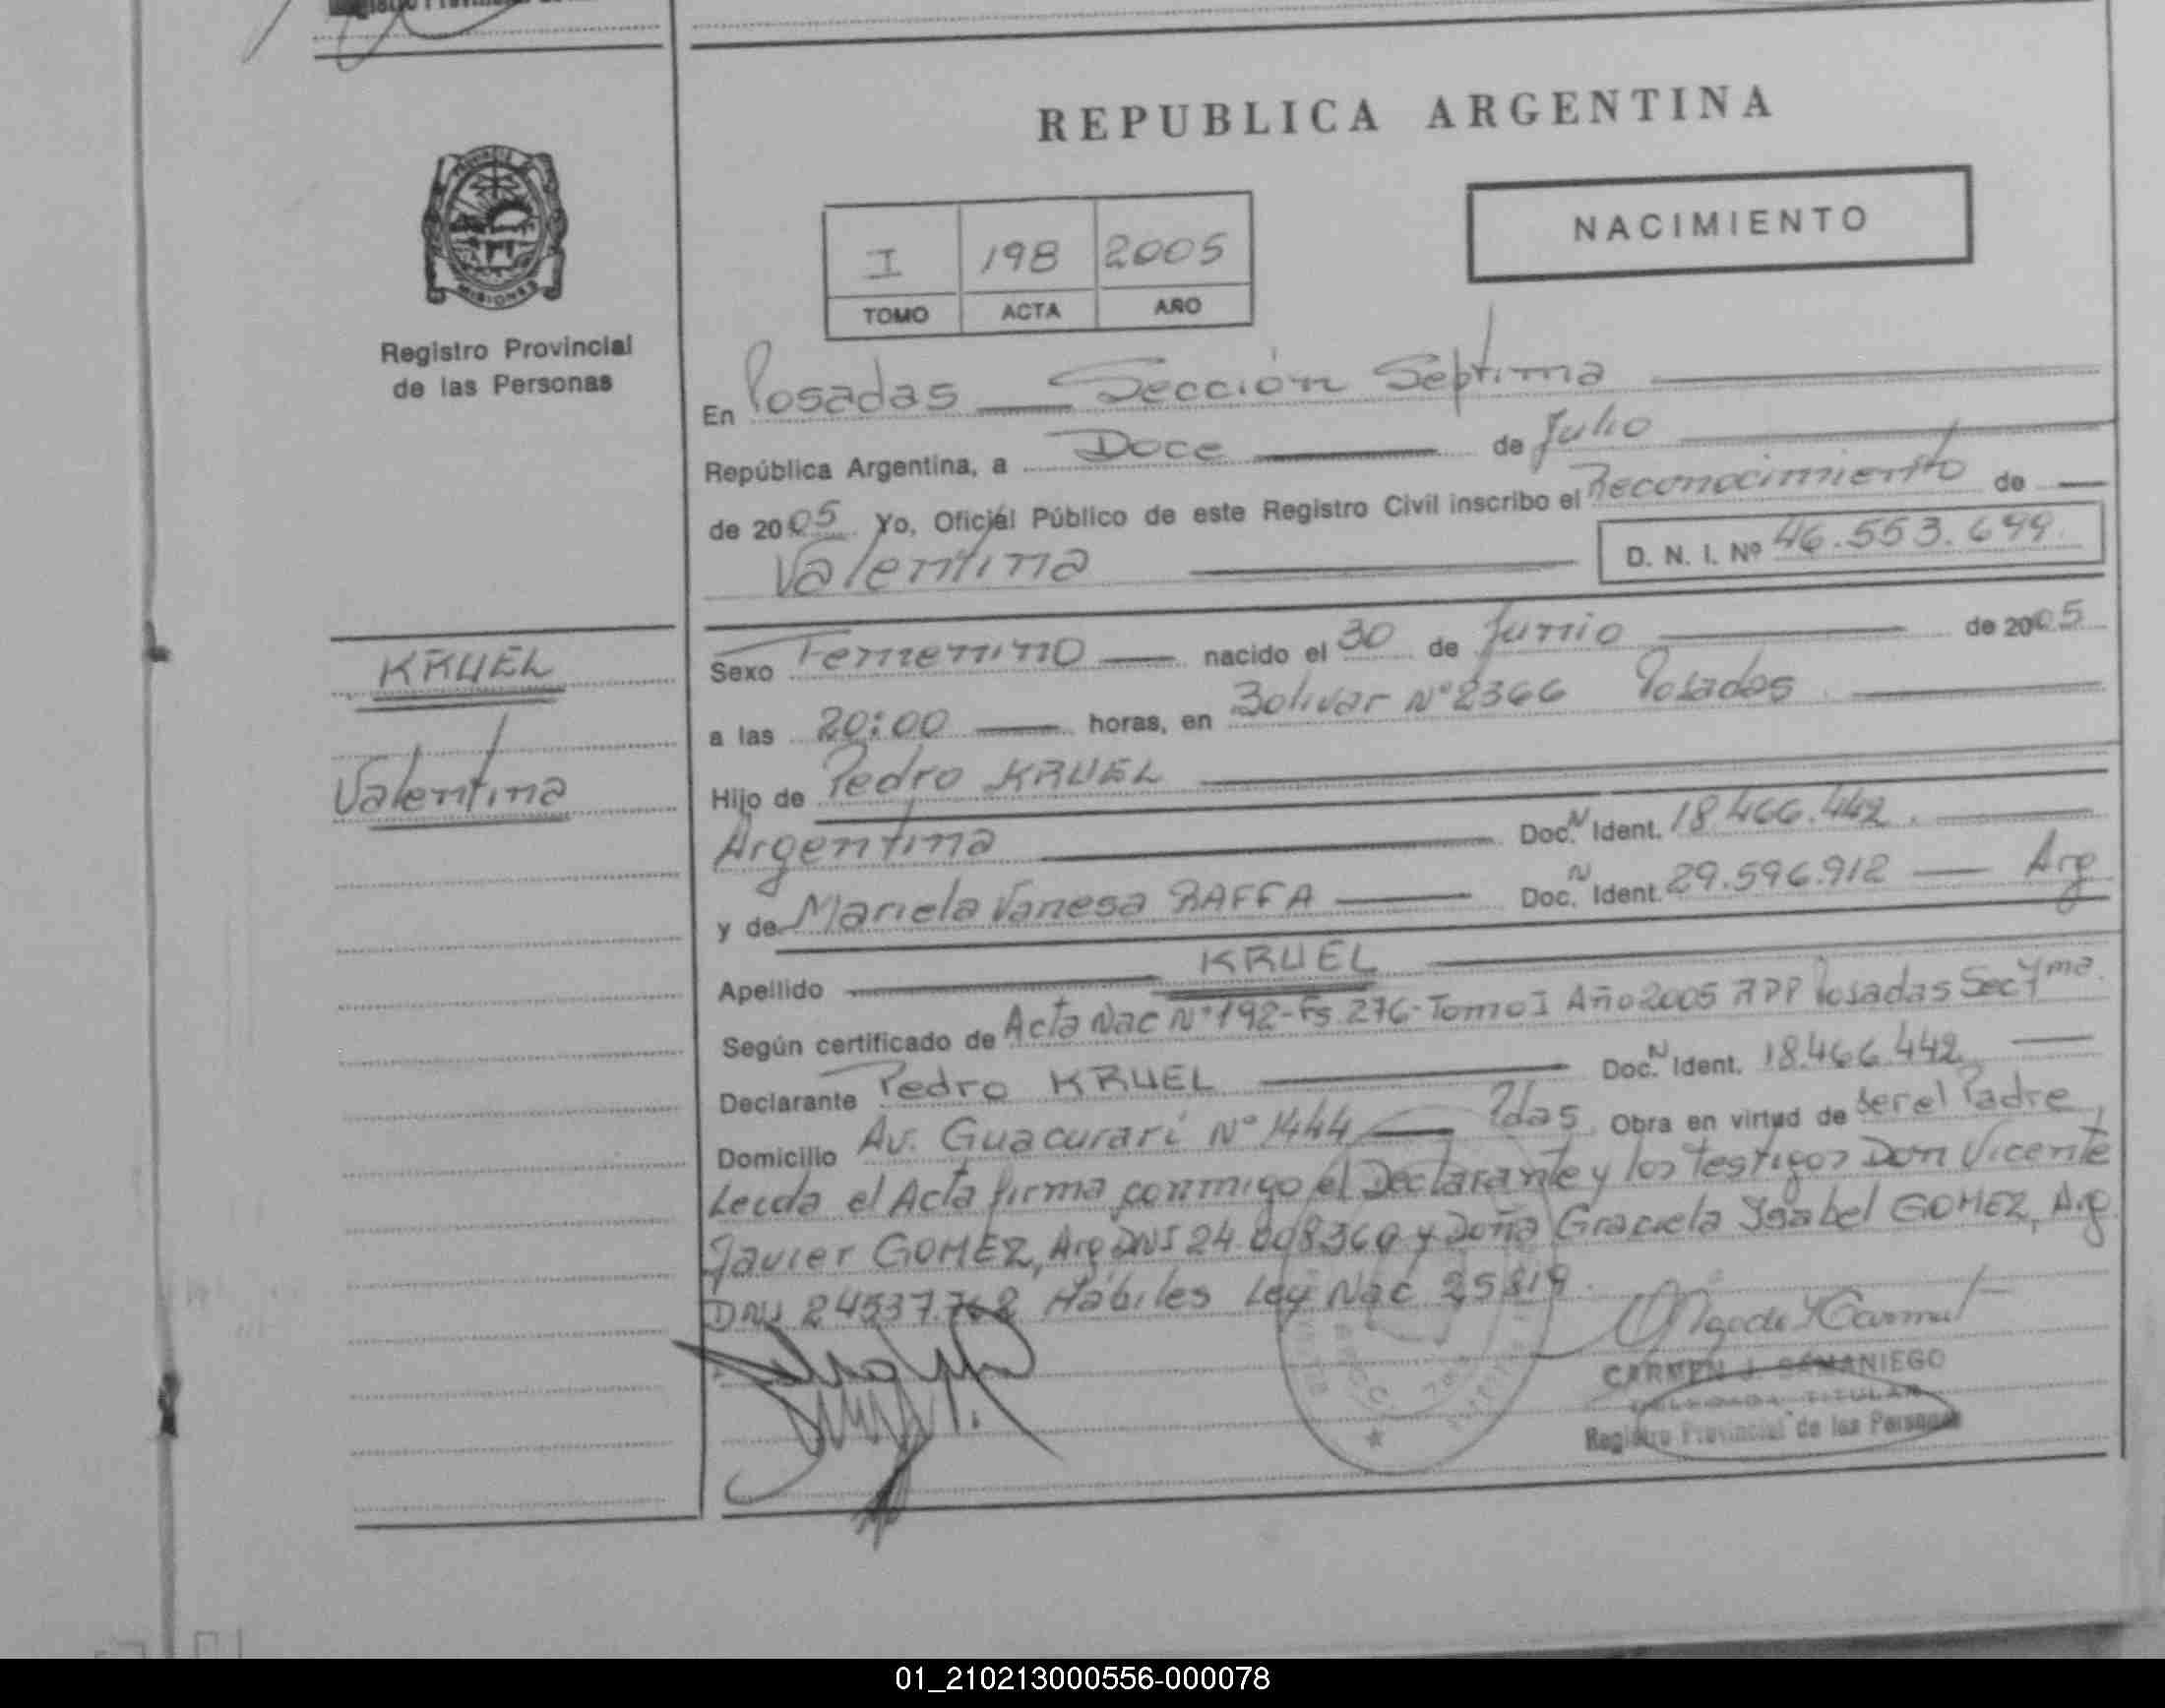 REPUBLICA ARGENTINA
NACIMIENTO
I 198 2005
TOMO ACTA AÑO
PROVINCIA
MISIONES
Registro Provincial
de las Personas
KRUEL
Valentina
En Posadas Sección Septima
República Argentina, a Doce de Julio
de 2005 Yo, Oficial Público de este Registro Civil inscribo el Reconocimiento de
Valentina D. N. I. Nº 46.553.699
Sexo Femenino nacido el 30 de Junio de 2005
a las 20:00 horas, en Bolivar Nº 2366 Posadas
Hijo de Pedro KRUEL
Argentina Doc. N Ident. 18.466.442
y de Mariela Vanesa RAFFA Doc. N Ident. 29.596.912 Arg
Apellido KRUEL
Según certificado de Acta Nac Nº 192-Fs 276-Tomo I Año 2005 RPP Posadas Sec 7ma
Declarante Pedro KRUEL Doc. N Ident. 18.466.442
Domicilio Av. Guacurarí Nº 1444 Pdas Obra en virtud de ser el Padre
Leida el Acta firma conmigo el Declarante y los testigos Don Vicente
Javier GOMEZ, Arg DNI y Doña Graciela Ysabel GOMEZ, Arg
DNI Hábiles Ley Nac 25819
CARMEN J. SAMANIEGO
DELEGADA TITULAR
Registro Provincial de las Personas
01_210213000556-000078